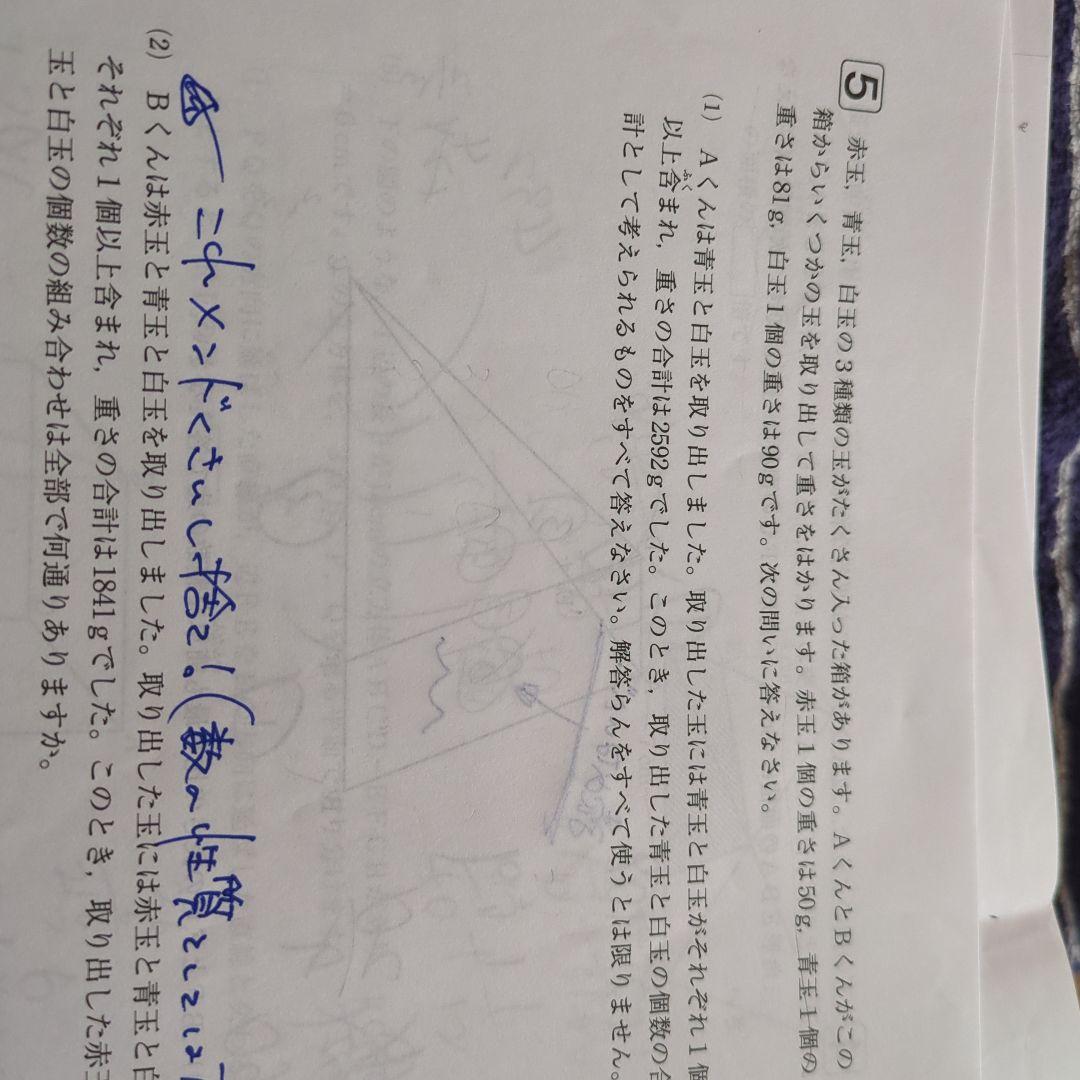 5 赤玉，青玉，白玉の3種類の玉がたくさん入った箱があります。AくんとBくんがこの
箱からいくつかの玉を取り出して重さをはかります。赤玉1個の重さは50g，青玉1個の
重さは81g，白玉1個の重さは90gです。次の問いに答えなさい。
(1) Aくんは青玉と白玉を取り出しました。取り出した玉には青玉と白玉がそれぞれ1個
以上含まれ，重さの合計は2592gでした。このとき，取り出した青玉と白玉の個数の合
ふく
計として考えられるものをすべて答えなさい。解答らんをすべて使うとは限りません。
これメンドくさいし捨て！(数の性質としては
(2) Bくんは赤玉と青玉と白玉を取り出しました。取り出した玉には赤玉と青玉と白
それぞれ1個以上含まれ，重さの合計は1841gでした。このとき，取り出した赤玉
玉と白玉の個数の組み合わせは全部で何通りありますか。